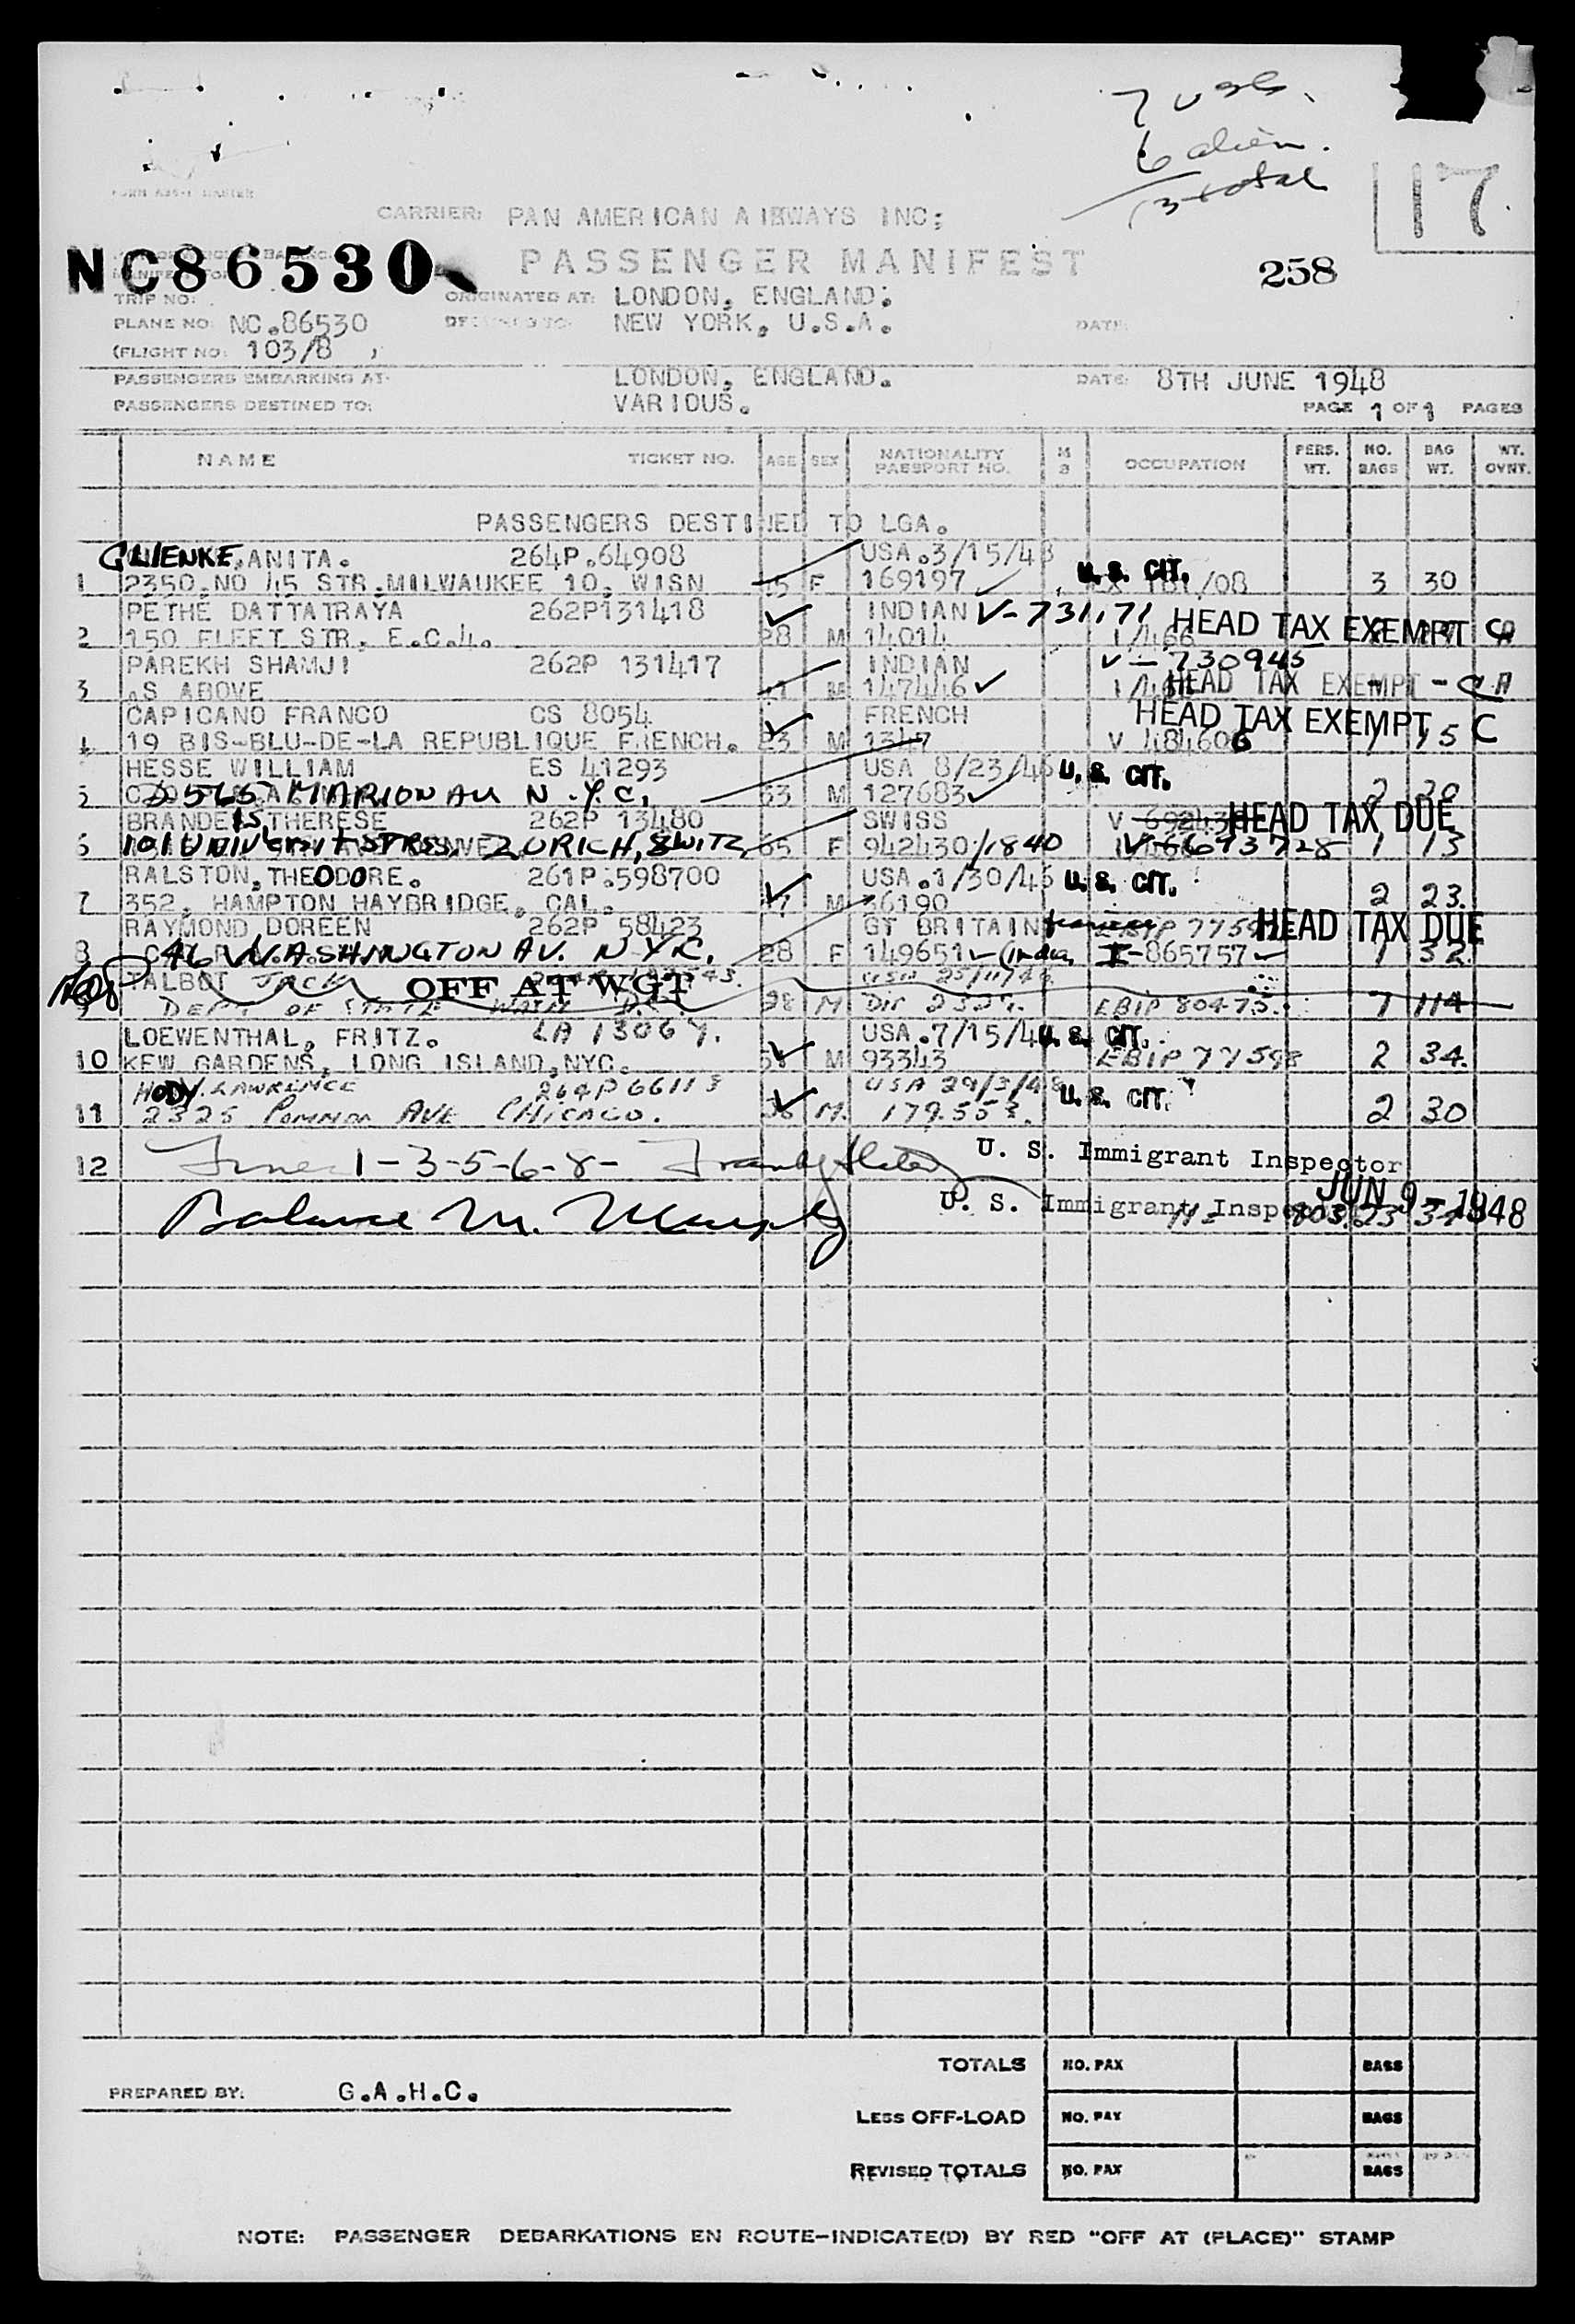 7 USC.
6 alien.
13 total
17
FORM
CARRIER: PAN AMERICAN AIRWAYS INC;
NC86530
PASSENGER MANIFEST
258
TRIP NO:
ORIGINATED AT: LONDON, ENGLAND;
PLANE NO: NC.86530
NEW YORK, U.S.A.
DATE:
(FLIGHT NO: 103/8
PASSENGERS EMBARKING AT: LONDON, ENGLAND. DATE: 8TH JUNE 1948
PASSENGERS DESTINED TO: VARIOUS. PAGE 1 OF 1 PAGES
NAME TICKET NO. AGE SEX NATIONALITY PASSPORT NO. OCCUPATION PERS. WT. NO. BAGS BAG WT. WT. OVNT.
PASSENGERS DESTINED TO LGA.
GLIENKE, ANITA. 264P.64908 USA.3/15/48
1 2350.NO 45 STR.MILWAUKEE 10. WISN F 169197 U.S. CIT. /08 3 30
PETHE DATTATRAYA 262P131418 INDIAN V-731171 HEAD TAX EXEMPT CA
2 150 FLEET STR. E.C.4. 28 M 14014 1/466
PAREKH SHAMJI 262P 131417 INDIAN V-730945
3 AS ABOVE M 147446 HEAD TAX EXEMPT - CA
CAPICANO FRANCO CS 8054 FRENCH HEAD TAX EXEMPT C
4 19 BIS-BLU-DE-LA REPUBLIQUE FRENCH. 23 M 1347 V 484606 15
HESSE WILLIAM ES 41293 USA 8/23/46 U.S. CIT.
5 2565 MARION AU N.Y.C. 33 M 127683 2 20
BRANDEIS THERESE 262P 13480 SWISS V HEAD TAX DUE
6 ZURICH, SWITZ, 65 F 942430/1840 V-693728 1 13
RALSTON, THEODORE. 261P.598700 USA.1/30/46 U.S. CIT.
7 352. HAMPTON HAYBRIDGE. CAL. M 36190 2 23.
RAYMOND DOREEN 262P 58423 GT BRITAIN HEAD TAX DUE
8 46 WASHINGTON AV. N.Y.C. 28 F 149651 (India) I-865757 1 32
TALBOT JACK OFF AT WGT USA 25/11/46
9 DEPT OF STATE WASH D.C. 28 M DIP 2327. EBIP 80473. 7 114
LOEWENTHAL, FRITZ. LA 13067. USA.7/15/4 U.S. CIT.
10 KEW GARDENS, LONG ISLAND,NYC. M 93343 EBIP 77598 2 34.
HODY. LAWRENCE 264P66118 USA 29/3/48 U.S. CIT.
11 2325 AVE CHICAGO. 36 M. 179553. 2 30
12 Lines 1-3-5-6-8- U. S. Immigrant Inspector
JUN 9 - 1948
Balance M. Murphy U. S. Immigrant Inspector
TOTALS NO. PAX BAGS
PREPARED BY: G.A.H.C.
LESS OFF-LOAD NO. PAX BAGS
REVISED TOTALS NO. PAX BAGS
NOTE: PASSENGER DEBARKATIONS EN ROUTE-INDICATE(D) BY RED "OFF AT (PLACE)" STAMP